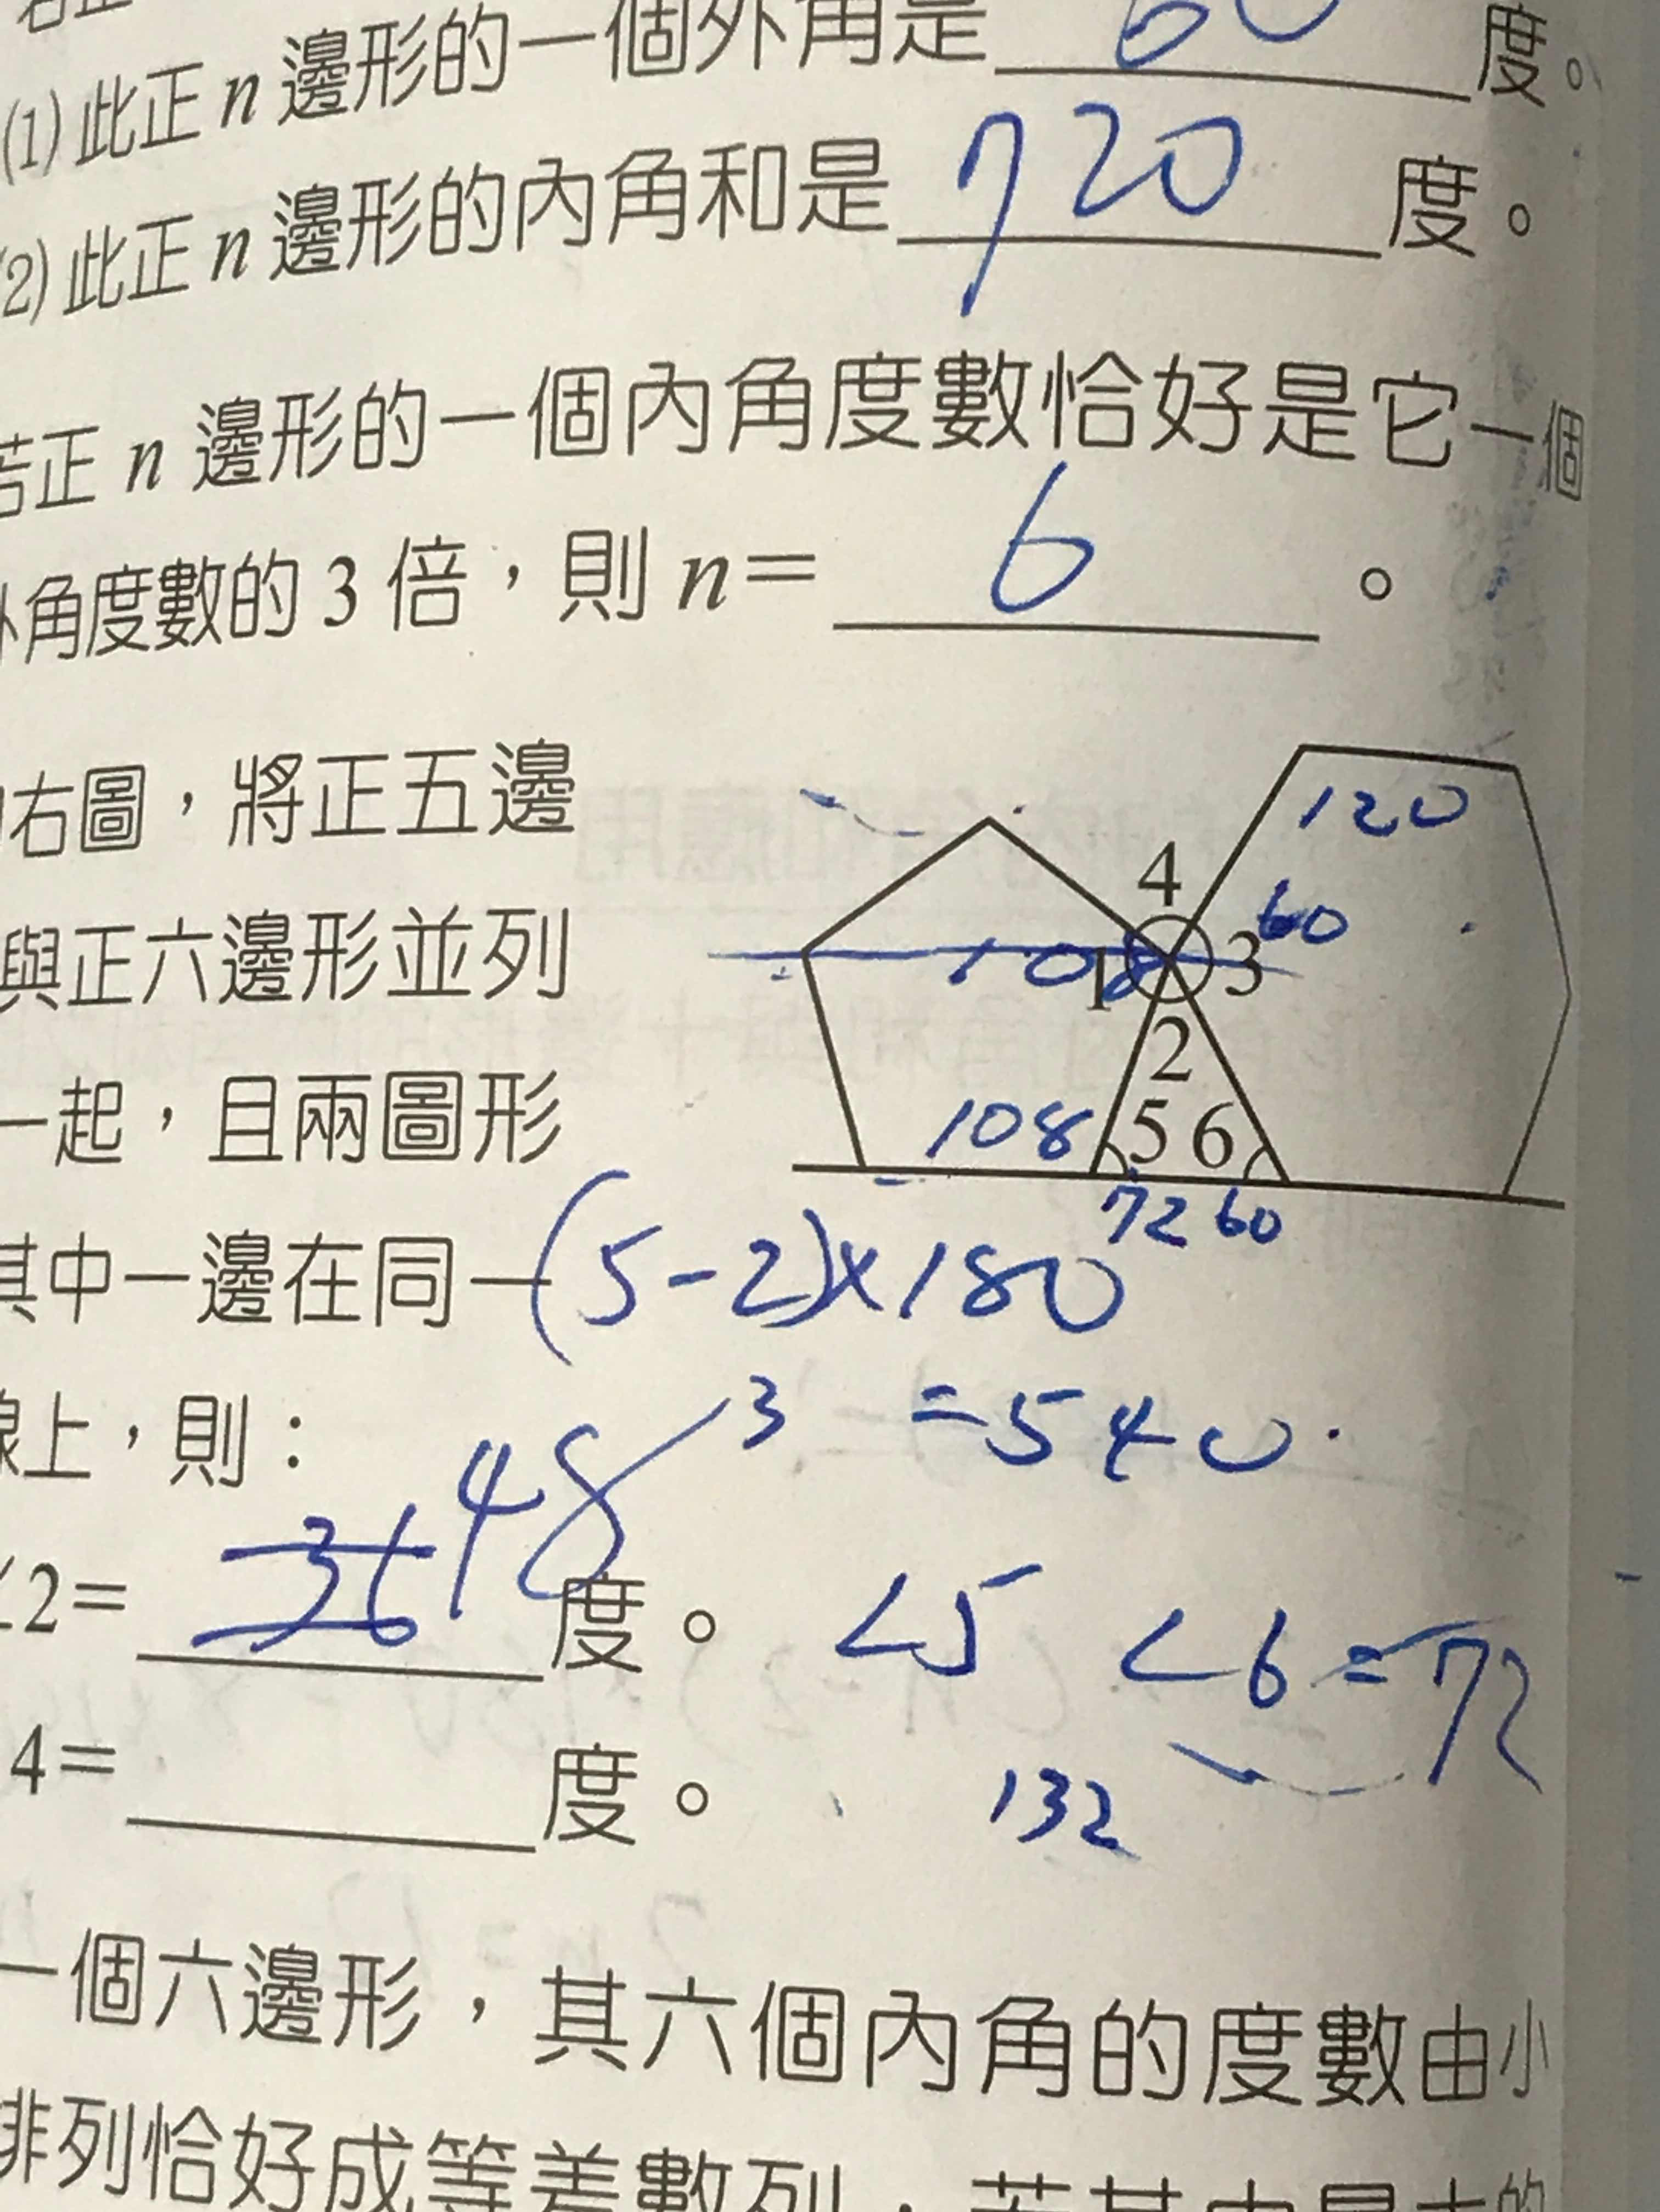 (1)此正n邊形的一個外角是 60 度。
(2)此正n邊形的內角和是 720 度。
若正n邊形的一個內角度數恰好是它一個
外角度數的3倍，則n= 6 。
右圖，將正五邊
與正六邊形並列
一起，且兩圖形
其中一邊在同一
線上，則：
120
4
60
108
1
3
2
108
5 6
72 60
(5-2)×180
3
=540
∠2= 36 48 度。
∠5 ∠6=72
4= 度。
132
一個六邊形，其六個內角的度數由小
排列恰好成等差數列，若其中最大的